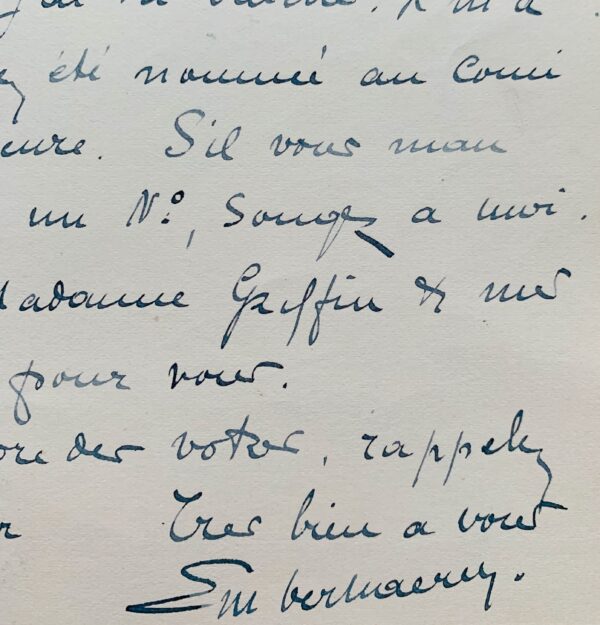 été nommé au Comi
eure. S'il vous man
un N°, songez a moi.
Madame Griffin & mes
pour vous.
ore des votres, rappelez
Tres bien a vous
Em Verhaeren.